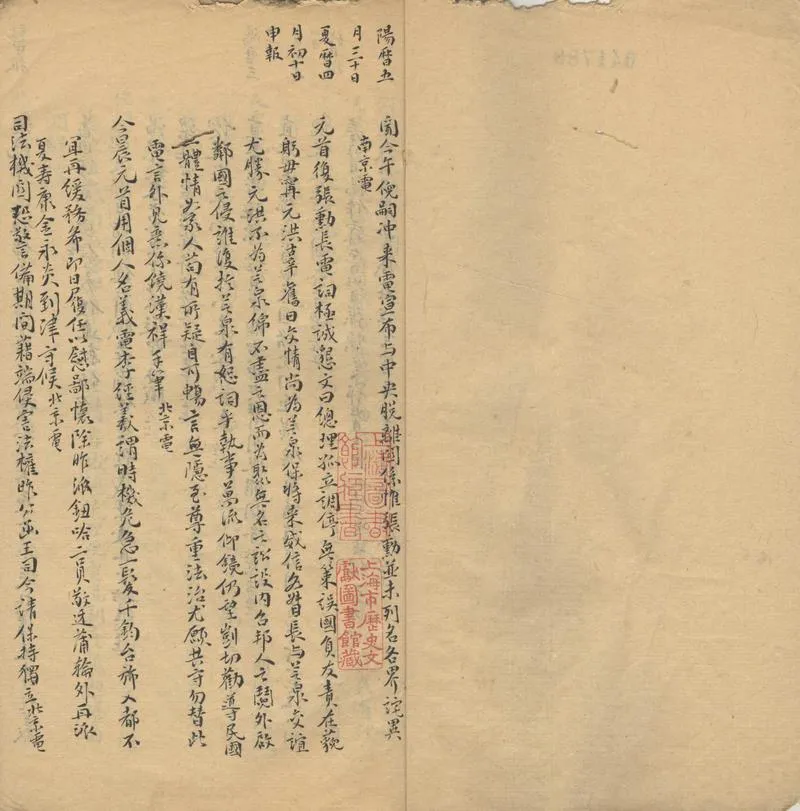 陽曆五
月三十日
夏曆四
月初十日
申報
聞今午倪嗣冲来電宣布与中央脫離關係惟張勳並未列名各界詫異
南京電
元首復張勳長電詞極誠懇文曰總理孤立調停無策誤國負友責在藐
躬毋寧元洪辜舊日交情尚為芝泉保將来威信多長与芝泉交誼
尤勝元洪不為芝泉綿不盡之恩而為聚無名之訟設內召邦人之鬩外啟
鄰國之侵誰復於芝泉有恕詞乎執事萬流仰鏡仍望剴切勸導民國
一體情如家人苟有所疑自可暢言無隱至尊重法治尤願共守勿替此
電言外見係饒漢祥手筆 北京電
今晨元首用個人名義電李經羲謂時機危急一髮千鈞台旆入都不
宜再緩務希即日履任以慰鄙懷除昨派鈕哈二員敬迓蒲輪外再派
夏壽康金永炎到津守候北京電
司法機關恐警備期間藉端侵害法權昨公函王司令請保持獨立北京電
上海圖書館藏書
上海市歷史文獻圖書館藏